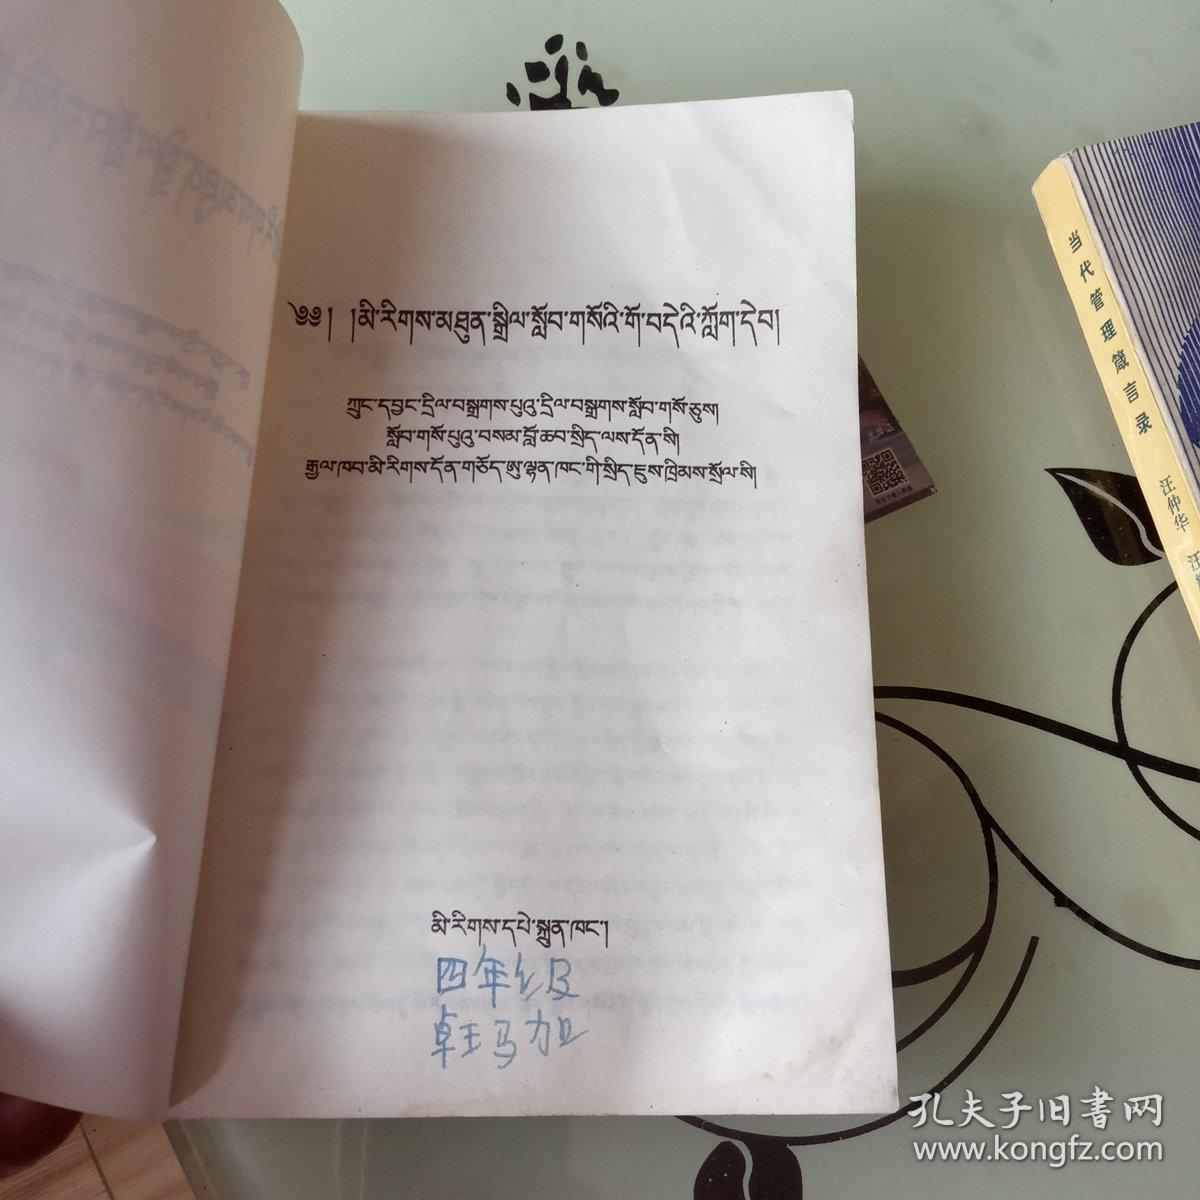 ༄༅། །མི་རིགས་མཐུན་སྒྲིལ་སློབ་གསོའི་གོ་བདེའི་ཀློག་དེབ།
ཀྲུང་དབྱང་དྲིལ་བསྒྲགས་པུའུ་དྲིལ་བསྒྲགས་སློབ་གསོ་ཅུས།
སློབ་གསོ་པུའུ་བསམ་བློ་ཆབ་སྲིད་ལས་དོན་སི།
རྒྱལ་ཁབ་མི་རིགས་དོན་གཅོད་ཨུ་ལྷན་ཁང་གི་སྲིད་ཇུས་ཁྲིམས་སྲོལ་སི།
མི་རིགས་དཔེ་སྐྲུན་ཁང་།
四年级
卓玛加
当代管理箴言录
汪仲华 汪
孔夫子旧書网
www.kongfz.com